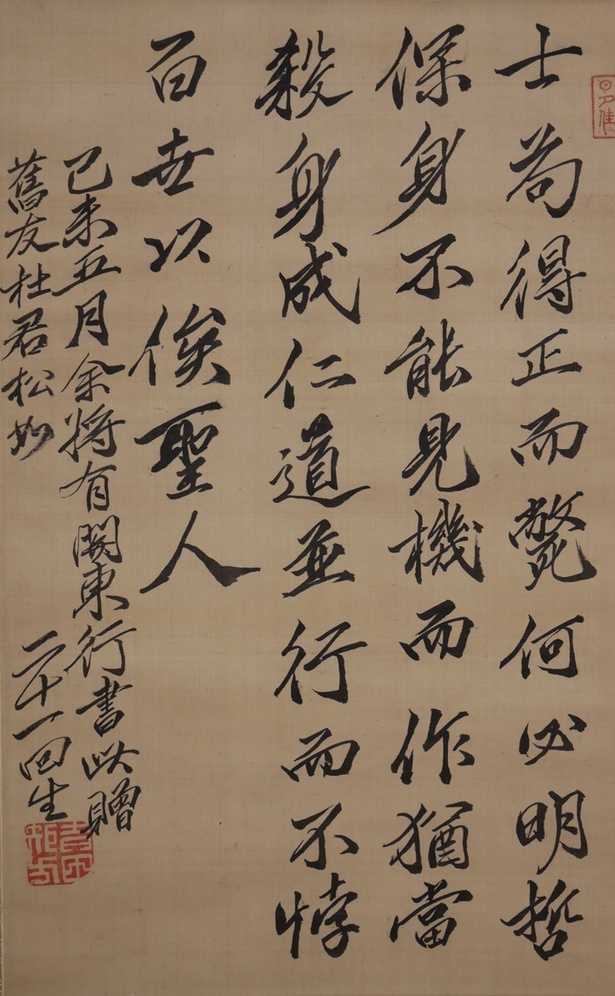 士苟得正而斃何必明哲
保身不能見機而作猶當
殺身成仁道並行而不悖
百世以俟聖人
己未五月余將有關東行書此贈
舊友杜君松如
二十一回生